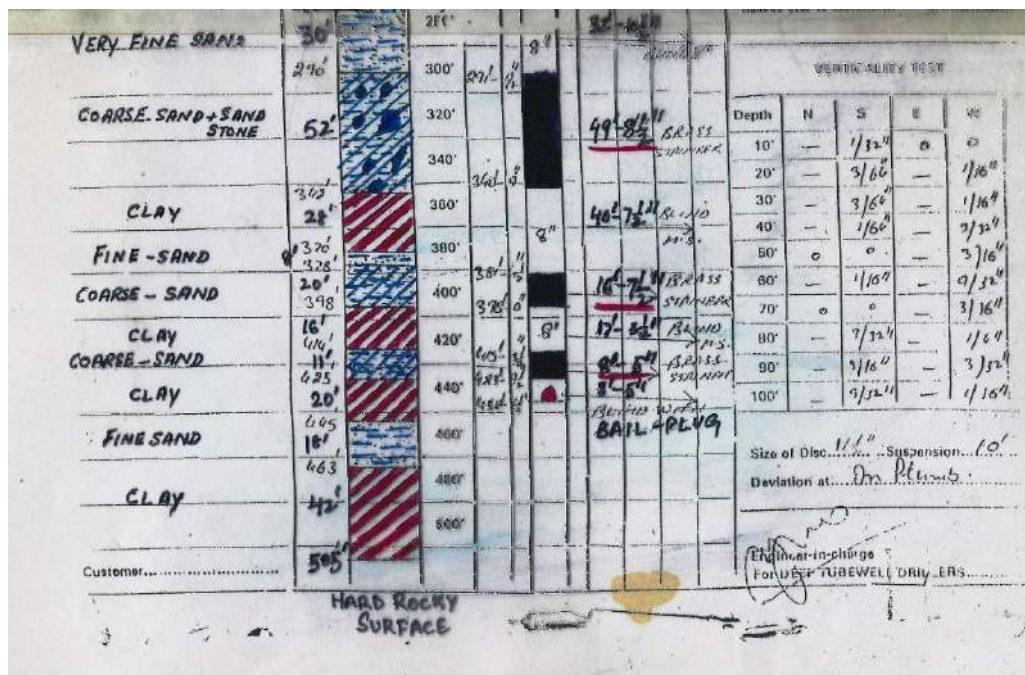 VERY FINE SAND
30'
290'
COARSE-SAND+SAND
STONE
52'
342'
CLAY
28'
370'
FINE-SAND
8'
378'
COARSE-SAND
20'
398'
CLAY
16'
414'
COARSE-SAND
11'
425
CLAY
20'
445
FINE SAND
18'
463
CLAY
42'
505'
Customer
HARD ROCKY
SURFACE
300'
320'
340'
360'
380'
400'
420'
440'
460'
480'
500'
8"
8"
8"
49'-8½" BRASS
STRAINER
40'-7½" BLIND
M.S.
16'-7½" BRASS
STRAINER
BLIND
M.S.
8'-5" BRASS
5'-5"
BLIND WITH
BAIL-PLUG
VERTICALITY TEST
Depth N S E W
10' — 1/32" 0 0
20' — 3/64 — 1/16"
30' — 3/64 — 1/64"
40' — 1/64 — 3/32"
50' 0 0 — 3/16"
60' — 1/16" — 9/32"
70' 0 0 — 3/16"
80' — 7/32" — 1/64
90' — 3/16" — 3/32
100' — 9/32" — 1/16"
Size of Disc Suspension 10'
Deviation at In Plumb.
Engineer-in-charge
For DEEP TUBEWELL DRILLERS